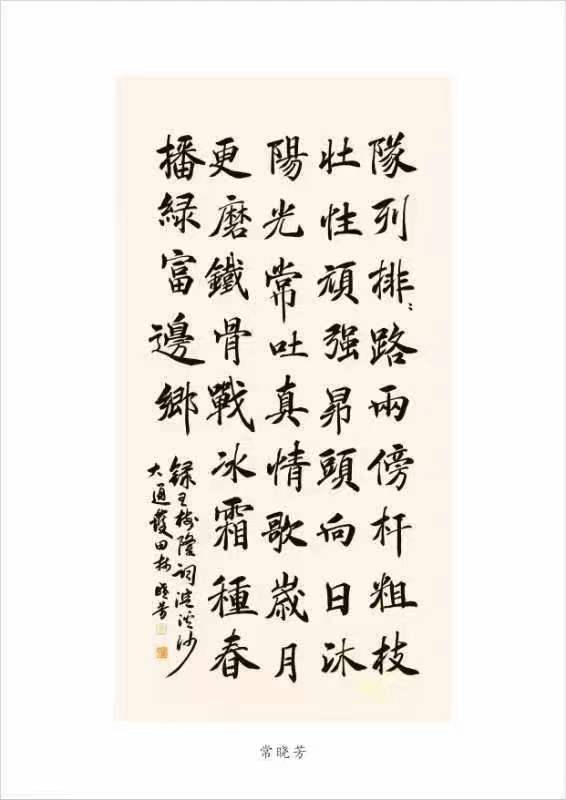 隊列排〻路兩傍杆粗枝
壯性頑强昂頭向日沐
陽光常吐真情歌歲月
更磨鐵骨戰冰霜種春
播緑富邊鄉
錄王隆詞浣溪沙
大通田曉芳
常晓芳